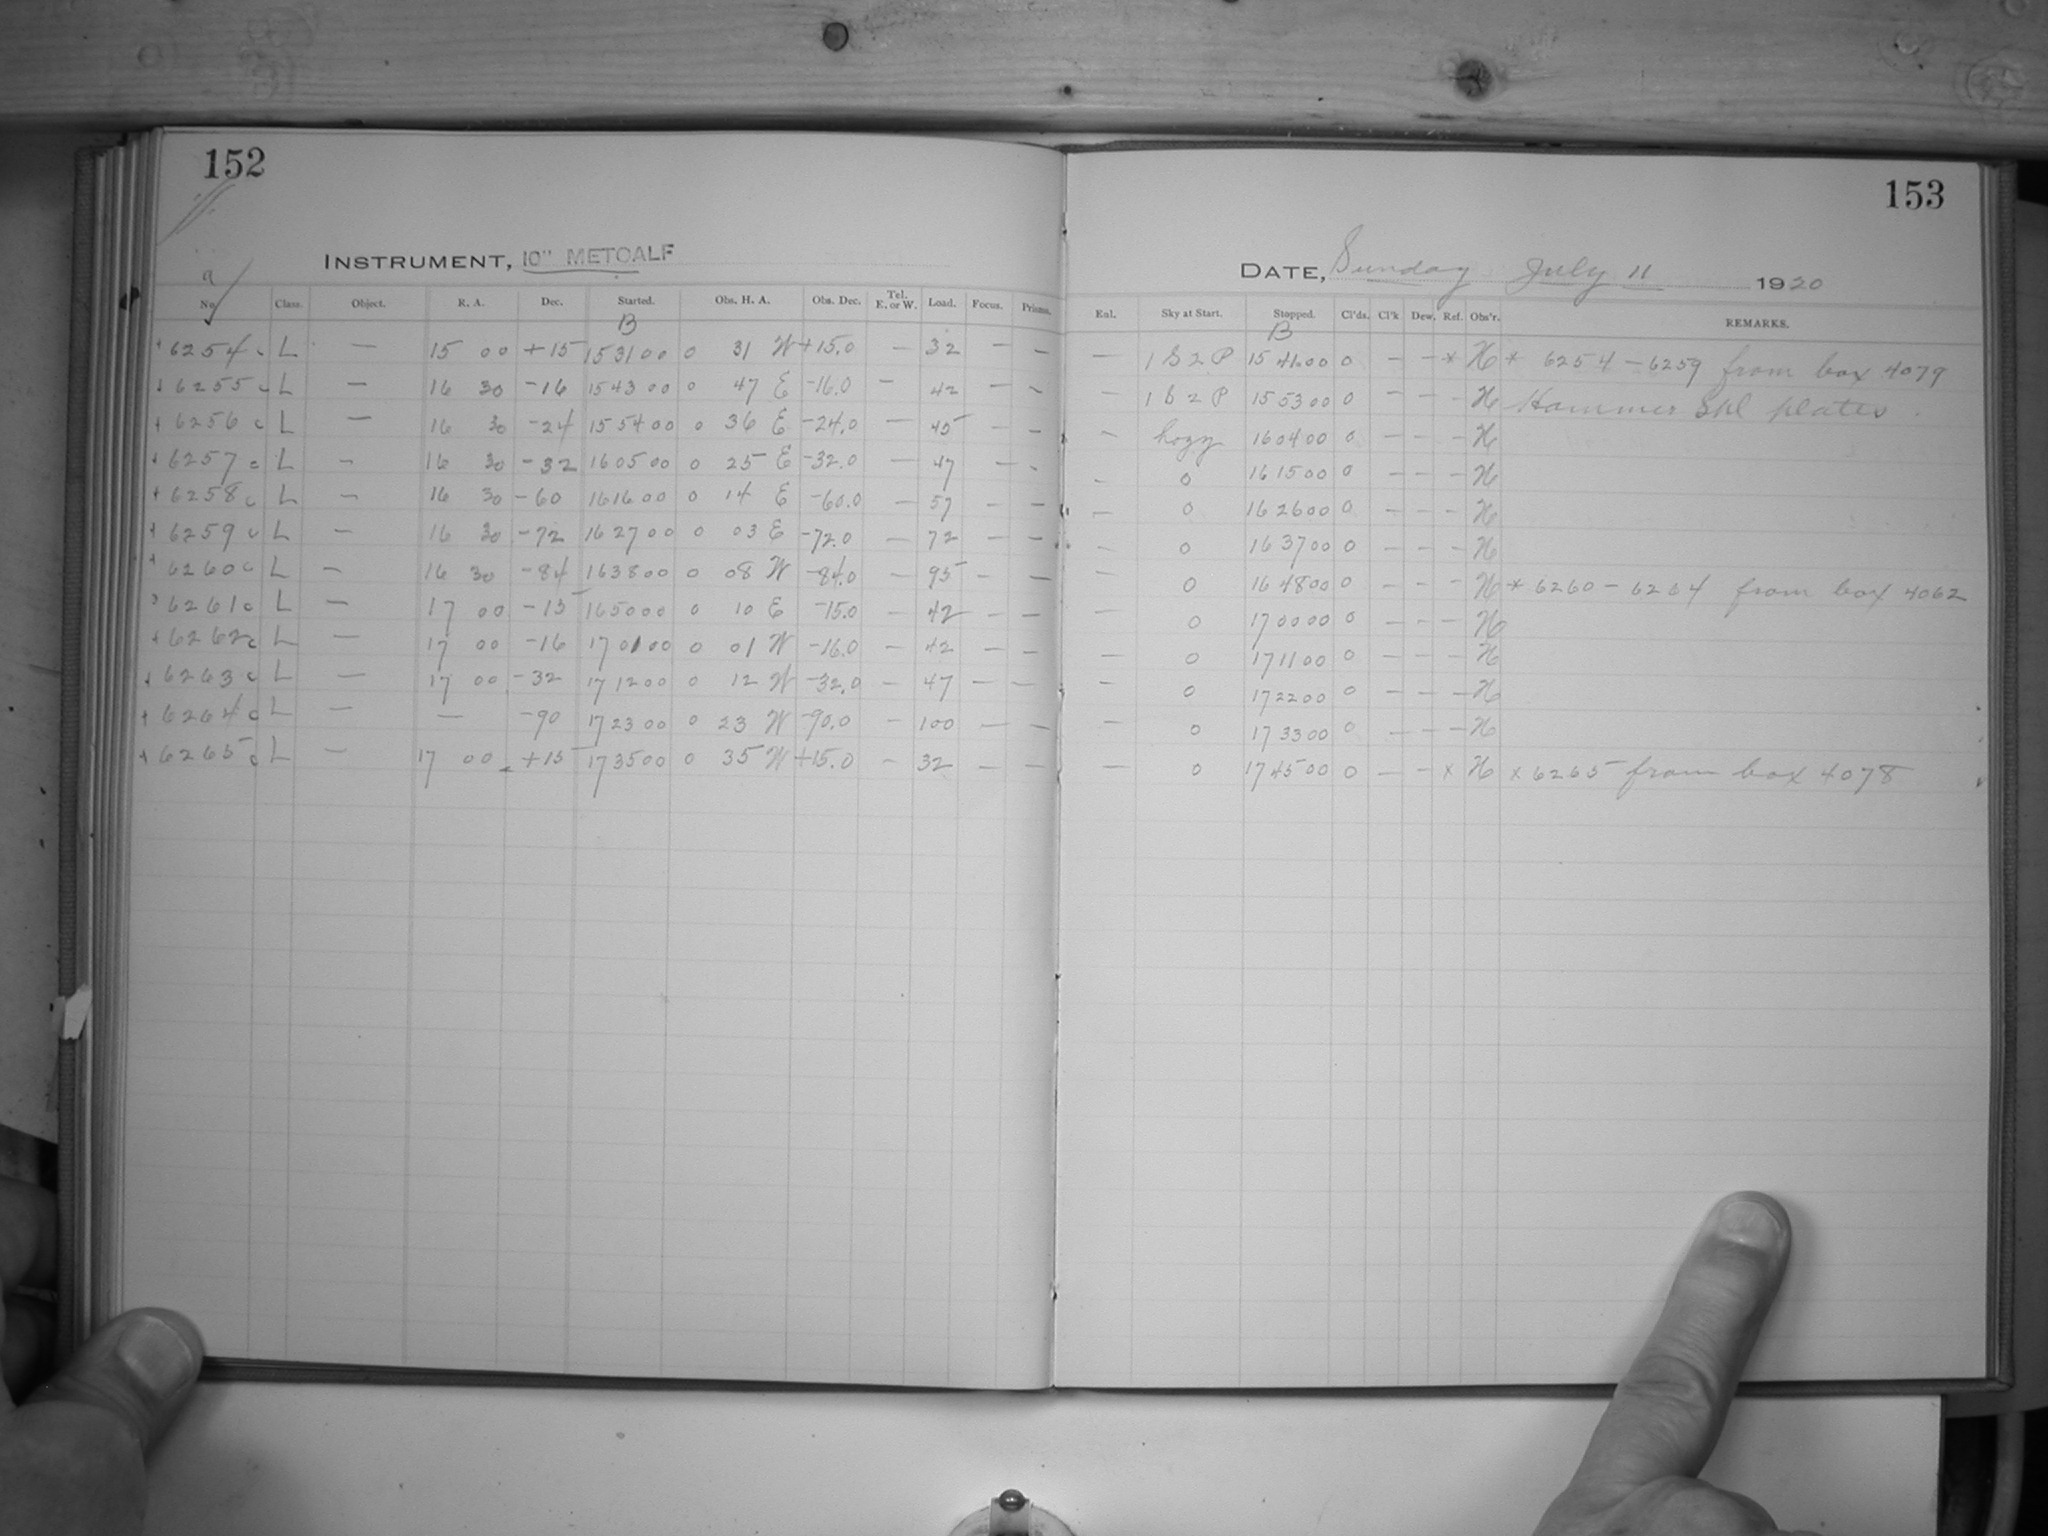 152
153
INSTRUMENT, 10" METCALF
DATE, Sunday July 11 1920
a
No. Class. Object. R. A. Dec. Started. Obs. H. A. Obs. Dec. Tel. E. or W. Load. Focus. Prisms. Enl. Sky at Start. Stopped. Cl'ds. Cl'k Dew. Ref. Obs'r. REMARKS.
B B
+ 6254 c L — 15 00 +15 15 31 00 0 31 W +15.0 — 32 — — — 1 S 2 P 15 41 00 0 — — * H * 6254 – 6259 from box 4079
+ 6255 c L — 16 30 -16 15 43 00 0 47 E -16.0 — 42 — — — 1 S 2 P 15 53 00 0 — — - H Hammer Spl plates.
+ 6256 c L — 16 30 -24 15 54 00 0 36 E -24.0 — 45 — — — hazy 16 04 00 0 — — — H
+ 6257 c L — 16 30 -32 16 05 00 0 25 E -32.0 — 47 — — - 0 16 15 00 0 — — — H
+ 6258 c L — 16 30 -60 16 16 00 0 14 E -60.0 — 57 — — — 0 16 26 00 0 — — — H
+ 6259 c L — 16 30 -72 16 27 00 0 03 E -72.0 — 72 — — — 0 16 37 00 0 — — — H
+ 6260 c L — 16 30 -84 16 38 00 0 08 W -84.0 — 95 — — — 0 16 48 00 0 — — — H * 6260 – 6264 from box 4062
+ 6261 c L — 17 00 -15 16 50 00 0 10 E -15.0 — 42 — — — 0 17 00 00 0 — — — H
+ 6262 c L — 17 00 -16 17 01 00 0 01 W -16.0 — 42 — — — 0 17 11 00 0 — — — H
+ 6263 c L — 17 00 -32 17 12 00 0 12 W -32.0 — 47 — — — 0 17 22 00 0 — — — H
+ 6264 c L — — -90 17 23 00 0 23 W -90.0 — 100 — — — 0 17 33 00 0 — — — H
+ 6265 c L — 17 00 +15 17 35 00 0 35 W +15.0 — 32 — — — 0 17 45 00 0 — — x H x 6265 from box 4078